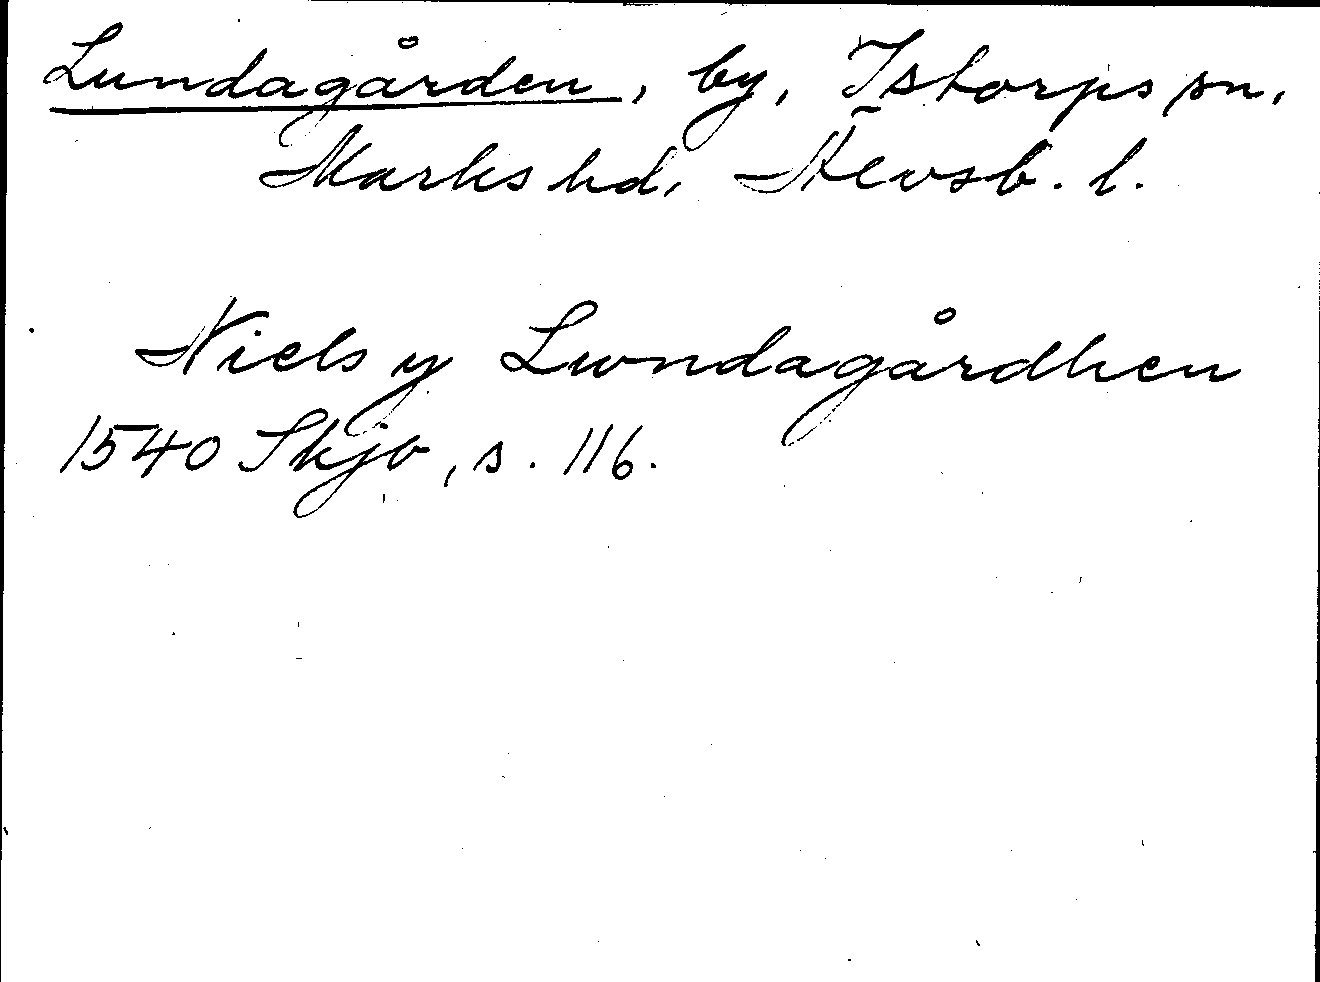 Lundagården, by, Istorps sn,
Marks hd, Älvsb. l.
Niels y Lwndagårdhen
1540 Skjb, s. 116.